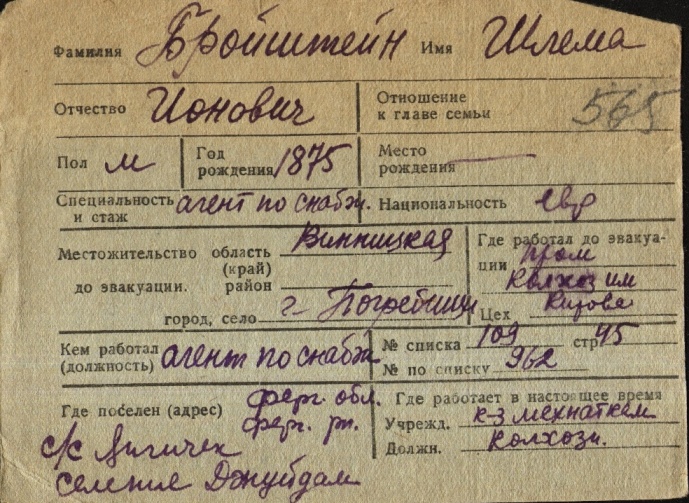 Фамилия Бройштейн Имя Шлема
Отчество Ионович Отношение к главе семьи 565
Пол м Год рождения 1875 Место рождения —
Специальность и стаж агент по снабж. Национальность евр
Местожительство область (край) Винницкая
до эвакуации. район
город, село г. Погребищи
Где работал до эвакуации пром
Колхоз им
Цех Кирова
Кем работал (должность) агент по снабж № списка 109 стр. 45
№ по списку 962
Где поселен (адрес) ферг. обл.
ферг. рн.
с/с
селение Джуйдам
Где работает в настоящее время
Учрежд. к-з мехнаткем
Должн. Колхозн.